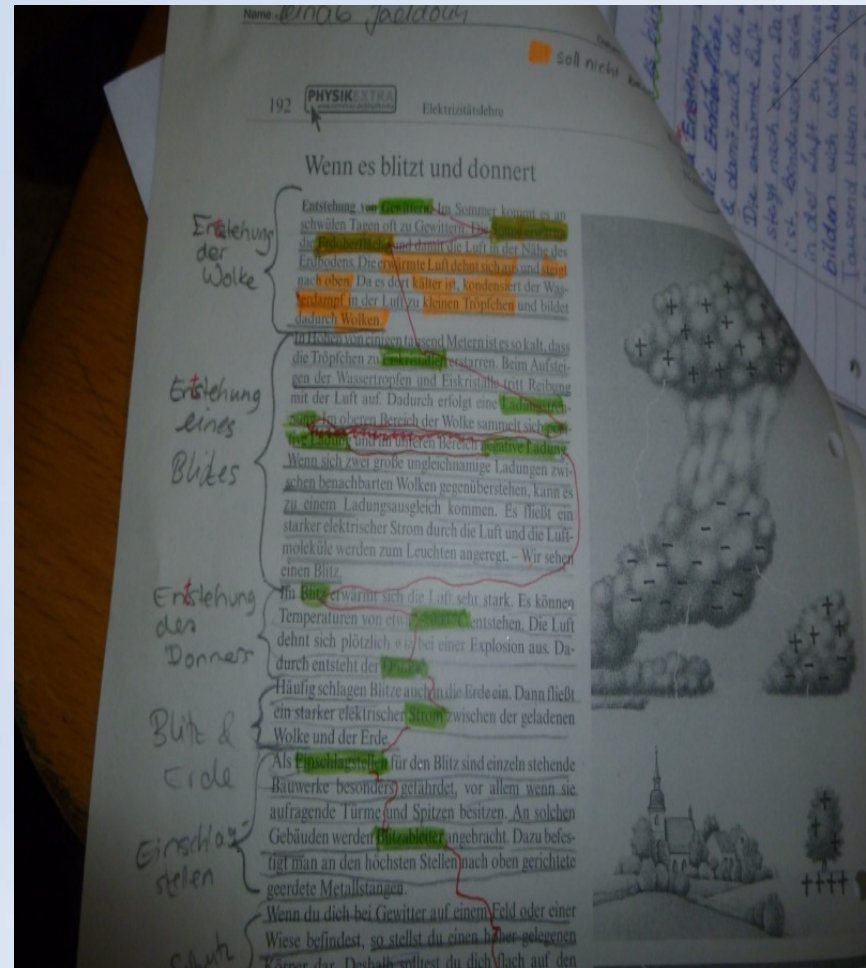 Name:
soll nicht
192 PHYSIK EXTRA Elektrizitätslehre
Wenn es blitzt und donnert
Entstehung
der
Wolke
Entstehung von Gewittern. Im Sommer kommt es an
schwülen Tagen oft zu Gewittern. Die
die Erdoberfläche und damit die Luft in der Nähe des
Erdbodens. Die erwärmte Luft dehnt sich aus und steigt
nach oben. Da es dort kälter ist, kondensiert der Was-
serdampf in der Luft zu kleinen Tröpfchen und bildet
dadurch Wolken.
Entstehung
eines
Blitzes
In Höhen von einigen tausend Metern ist es so kalt, dass
die Tröpfchen zu Eiskristallen erstarren. Beim Aufstei-
gen der Wassertropfen und Eiskristalle tritt Reibung
mit der Luft auf. Dadurch erfolgt eine Ladungstren-
nung. Im oberen Bereich der Wolke sammelt sich posi-
tive Ladung und im unteren Bereich negative Ladung.
Wenn sich zwei große ungleichnamige Ladungen zwi-
schen benachbarten Wolken gegenüberstehen, kann es
zu einem Ladungsausgleich kommen. Es fließt ein
starker elektrischer Strom durch die Luft und die Luft-
moleküle werden zum Leuchten angeregt. – Wir sehen
einen Blitz.
Entstehung
des
Donners
Im Blitz erwärmt sich die Luft sehr stark. Es können
Temperaturen von etwa entstehen. Die Luft
dehnt sich plötzlich wie bei einer Explosion aus. Da-
durch entsteht der Donner.
Blitz &
Erde
Häufig schlagen Blitze auch in die Erde ein. Dann fließt
ein starker elektrischer Strom zwischen der geladenen
Wolke und der Erde.
Einschlag-
stellen
Als Einschlagstellen für den Blitz sind einzeln stehende
Bauwerke besonders gefährdet, vor allem wenn sie
aufragende Türme und Spitzen besitzen. An solchen
Gebäuden werden Blitzableiter angebracht. Dazu befes-
tigt man an den höchsten Stellen nach oben gerichtete
geerdete Metallstangen.
Schutz
Wenn du dich bei Gewitter auf einem Feld oder einer
Wiese befindest, so stellst du einen höher gelegenen
Körper dar. Deshalb solltest du dich flach auf den